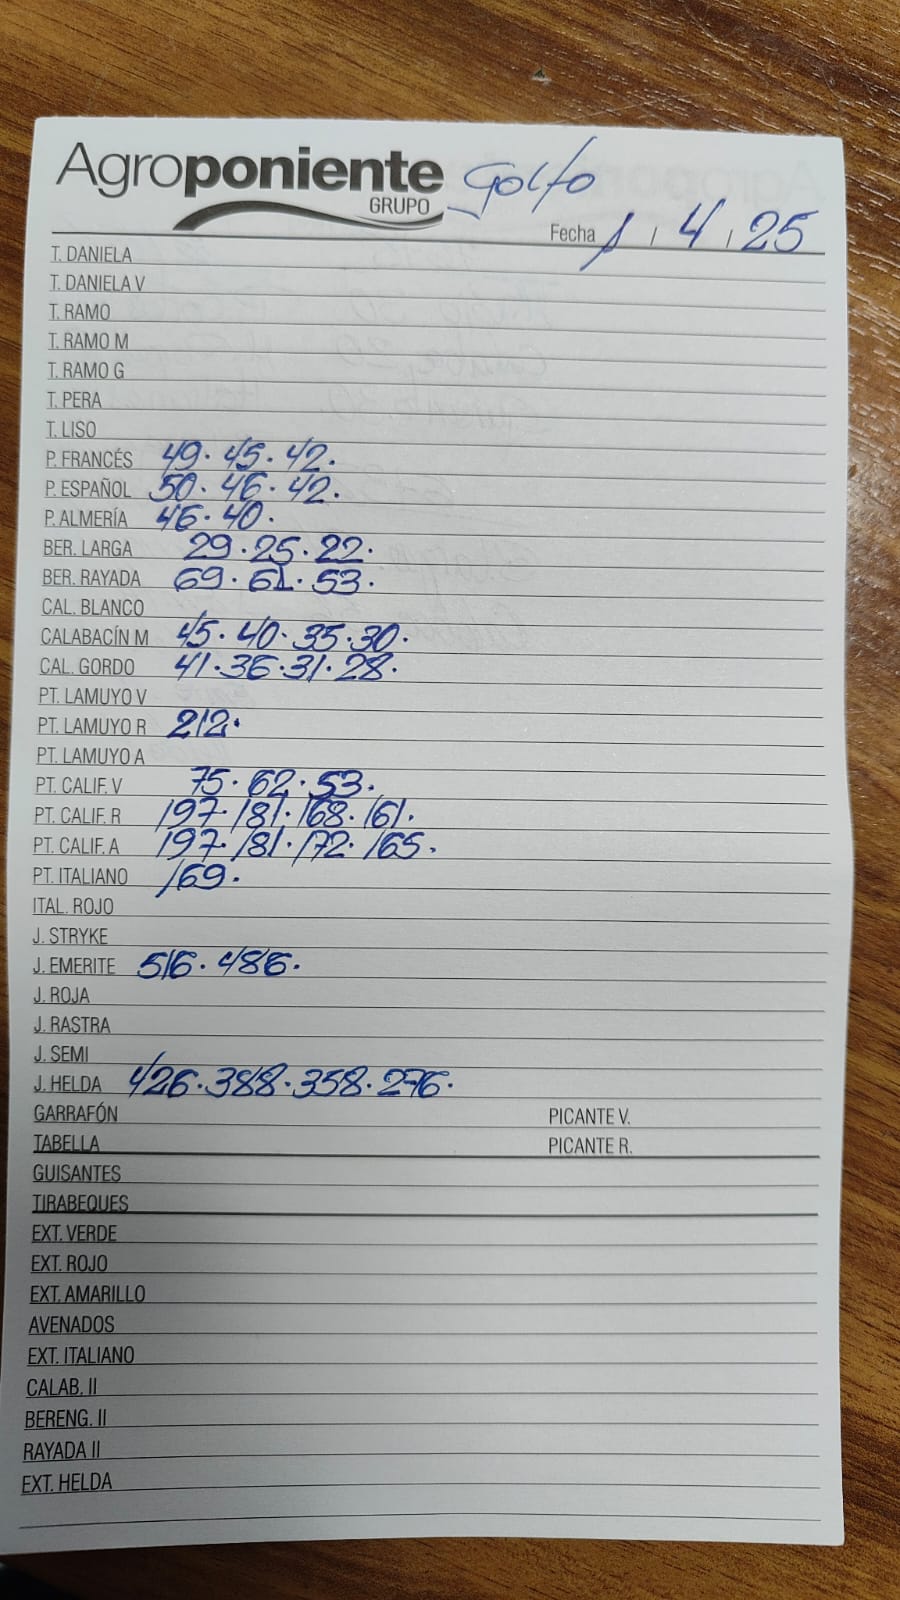 Agroponiente
GRUPO
Golfo
Fecha 1 / 4 / 25
T. DANIELA
T. DANIELA V
T. RAMO
T. RAMO M
T. RAMO G
T. PERA
T. LISO
P. FRANCÉS 49. 45. 42.
P. ESPAÑOL 50. 46. 42.
P. ALMERÍA 46. 40.
BER. LARGA 29. 25. 22.
BER. RAYADA 69. 61. 53.
CAL. BLANCO
CALABACÍN M 45. 40. 35. 30.
CAL. GORDO 41. 36. 31. 28.
PT. LAMUYO V
PT. LAMUYO R 212.
PT. LAMUYO A
PT. CALIF. V 75. 62. 53.
PT. CALIF. R 197. 181. 168. 161.
PT. CALIF. A 197. 181. 172. 165.
PT. ITALIANO 169.
ITAL. ROJO
J. STRYKE
J. EMERITE 516. 486.
J. ROJA
J. RASTRA
J. SEMI
J. HELDA 426. 388. 358. 276.
GARRAFÓN PICANTE V.
TABELLA PICANTE R.
GUISANTES
TIRABEQUES
EXT. VERDE
EXT. ROJO
EXT. AMARILLO
AVENADOS
EXT. ITALIANO
CALAB. II
BERENG. II
RAYADA II
EXT. HELDA